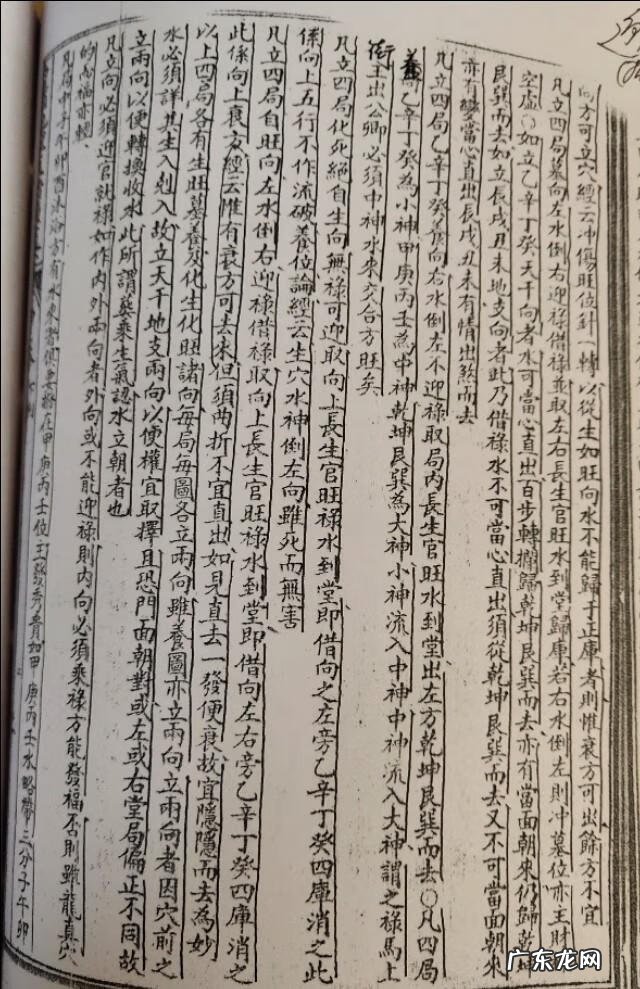 向方可立穴經云冲傷旺位針一轉以從生如旺向水不能歸于正庫者則惟衰方可出餘方不宜
凡立四局墓向左水倒右迎祿借祿並取左右長生官旺水到堂歸庫若右水倒左則冲墓位亦主財
空虛○如立乙辛丁癸天干向者水可當心直出百步轉攔歸乾坤艮巽而去亦有當面朝來仍歸乾坤
艮巽而去如立辰戌丑未地支向者此乃借祿水不可當心直出須從乾坤艮巽而去又不可當面朝來
亦有變當心直出辰戌丑未有情出煞而去
凡立四局乙辛丁癸養向右水倒左不迎祿取局內長生官旺水到堂出左方乾坤艮巽而去○凡四局
養乙辛丁癸為小神甲庚丙壬為中神乾坤艮巽為大神小神流入中神中神流入大神謂之祿馬上
街主出公卿必須中神水來交合方旺矣
凡立四局化死絕自生向無祿可迎取向上長生官旺祿水到堂即借向之左旁乙辛丁癸四庫消之此
係向上五行不作流破養位論經云生穴水神倒左向雖死而無害
凡立四局自旺向左水倒右迎祿借祿取向上長生官旺祿水到堂即借向左右旁乙辛丁癸四庫消之
此係向上衰方經云惟有衰方可去來但須兩折不宜直出如見直去一發便衰故宜隱隱而去為妙
以上四局各有生旺墓養及化生化旺諸向每局每圖各立兩向雖養圖亦立兩向立兩向者因穴前之
水必須詳其生入剋入故立天干地支兩向以便權宜取擇且恐門面朝對或左或右堂局偏正不同故
立兩向以便轉換收水此所謂葬乘生氣認水立朝者也
凡立向必須迎官就祿如作內外兩向者外向或不能迎祿則內向必須乘祿方能發福否則雖龍真穴
的而福亦輕
凡局中子午卯酉沐浴方有水來者
甲庚丙壬位主發秀貴如甲庚丙壬水略帶三分子午卯
廣东龙网